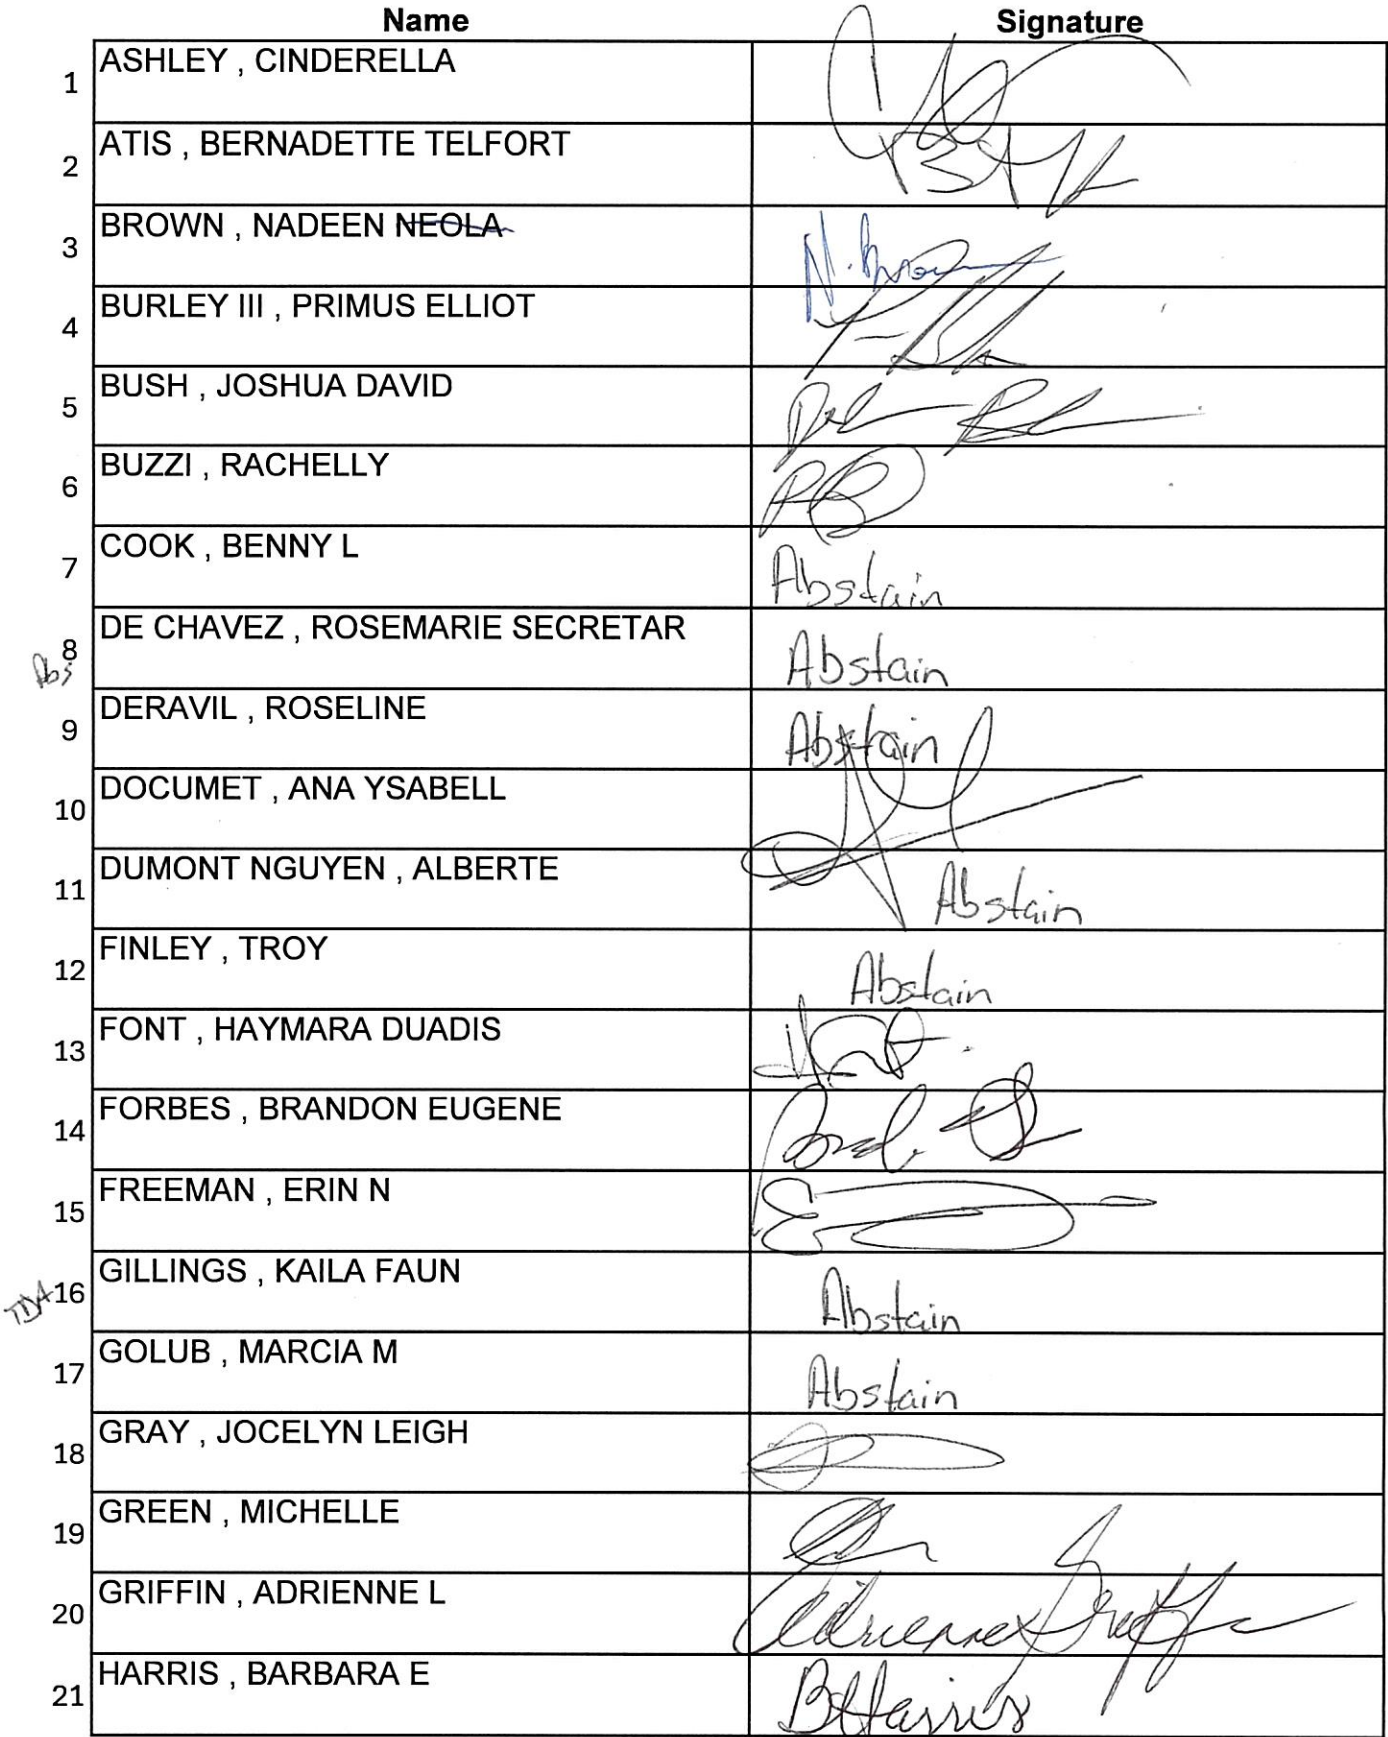 Name Signature
1 ASHLEY , CINDERELLA
2 ATIS , BERNADETTE TELFORT
3 BROWN , NADEEN NEOLA N. Brown
4 BURLEY III , PRIMUS ELLIOT
5 BUSH , JOSHUA DAVID
6 BUZZI , RACHELLY
7 COOK , BENNY L Abstain
8 DE CHAVEZ , ROSEMARIE SECRETAR Abstain
Abs
9 DERAVIL , ROSELINE Abstain
10 DOCUMET , ANA YSABELL
11 DUMONT NGUYEN , ALBERTE Abstain
12 FINLEY , TROY Abstain
13 FONT , HAYMARA DUADIS
14 FORBES , BRANDON EUGENE
15 FREEMAN , ERIN N
16 GILLINGS , KAILA FAUN Abstain
17 GOLUB , MARCIA M Abstain
18 GRAY , JOCELYN LEIGH
19 GREEN , MICHELLE
20 GRIFFIN , ADRIENNE L Adrienne Griffin
21 HARRIS , BARBARA E BHarris